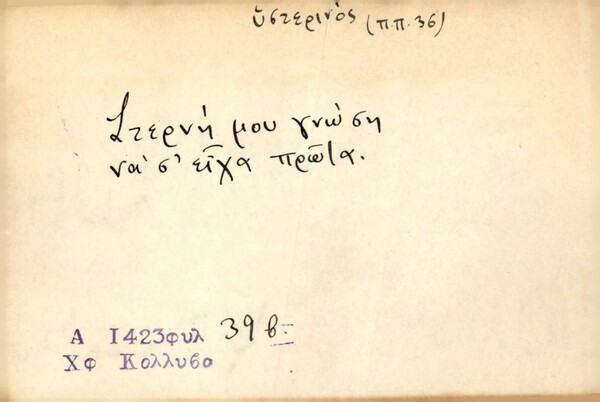 ὑστερινός (π.π. 36)
Στερνή μου γνώση
νὰ σ' εἶχα πρῶτα.
Α 1423φυλ 39 β
Χφ Κολλυβο